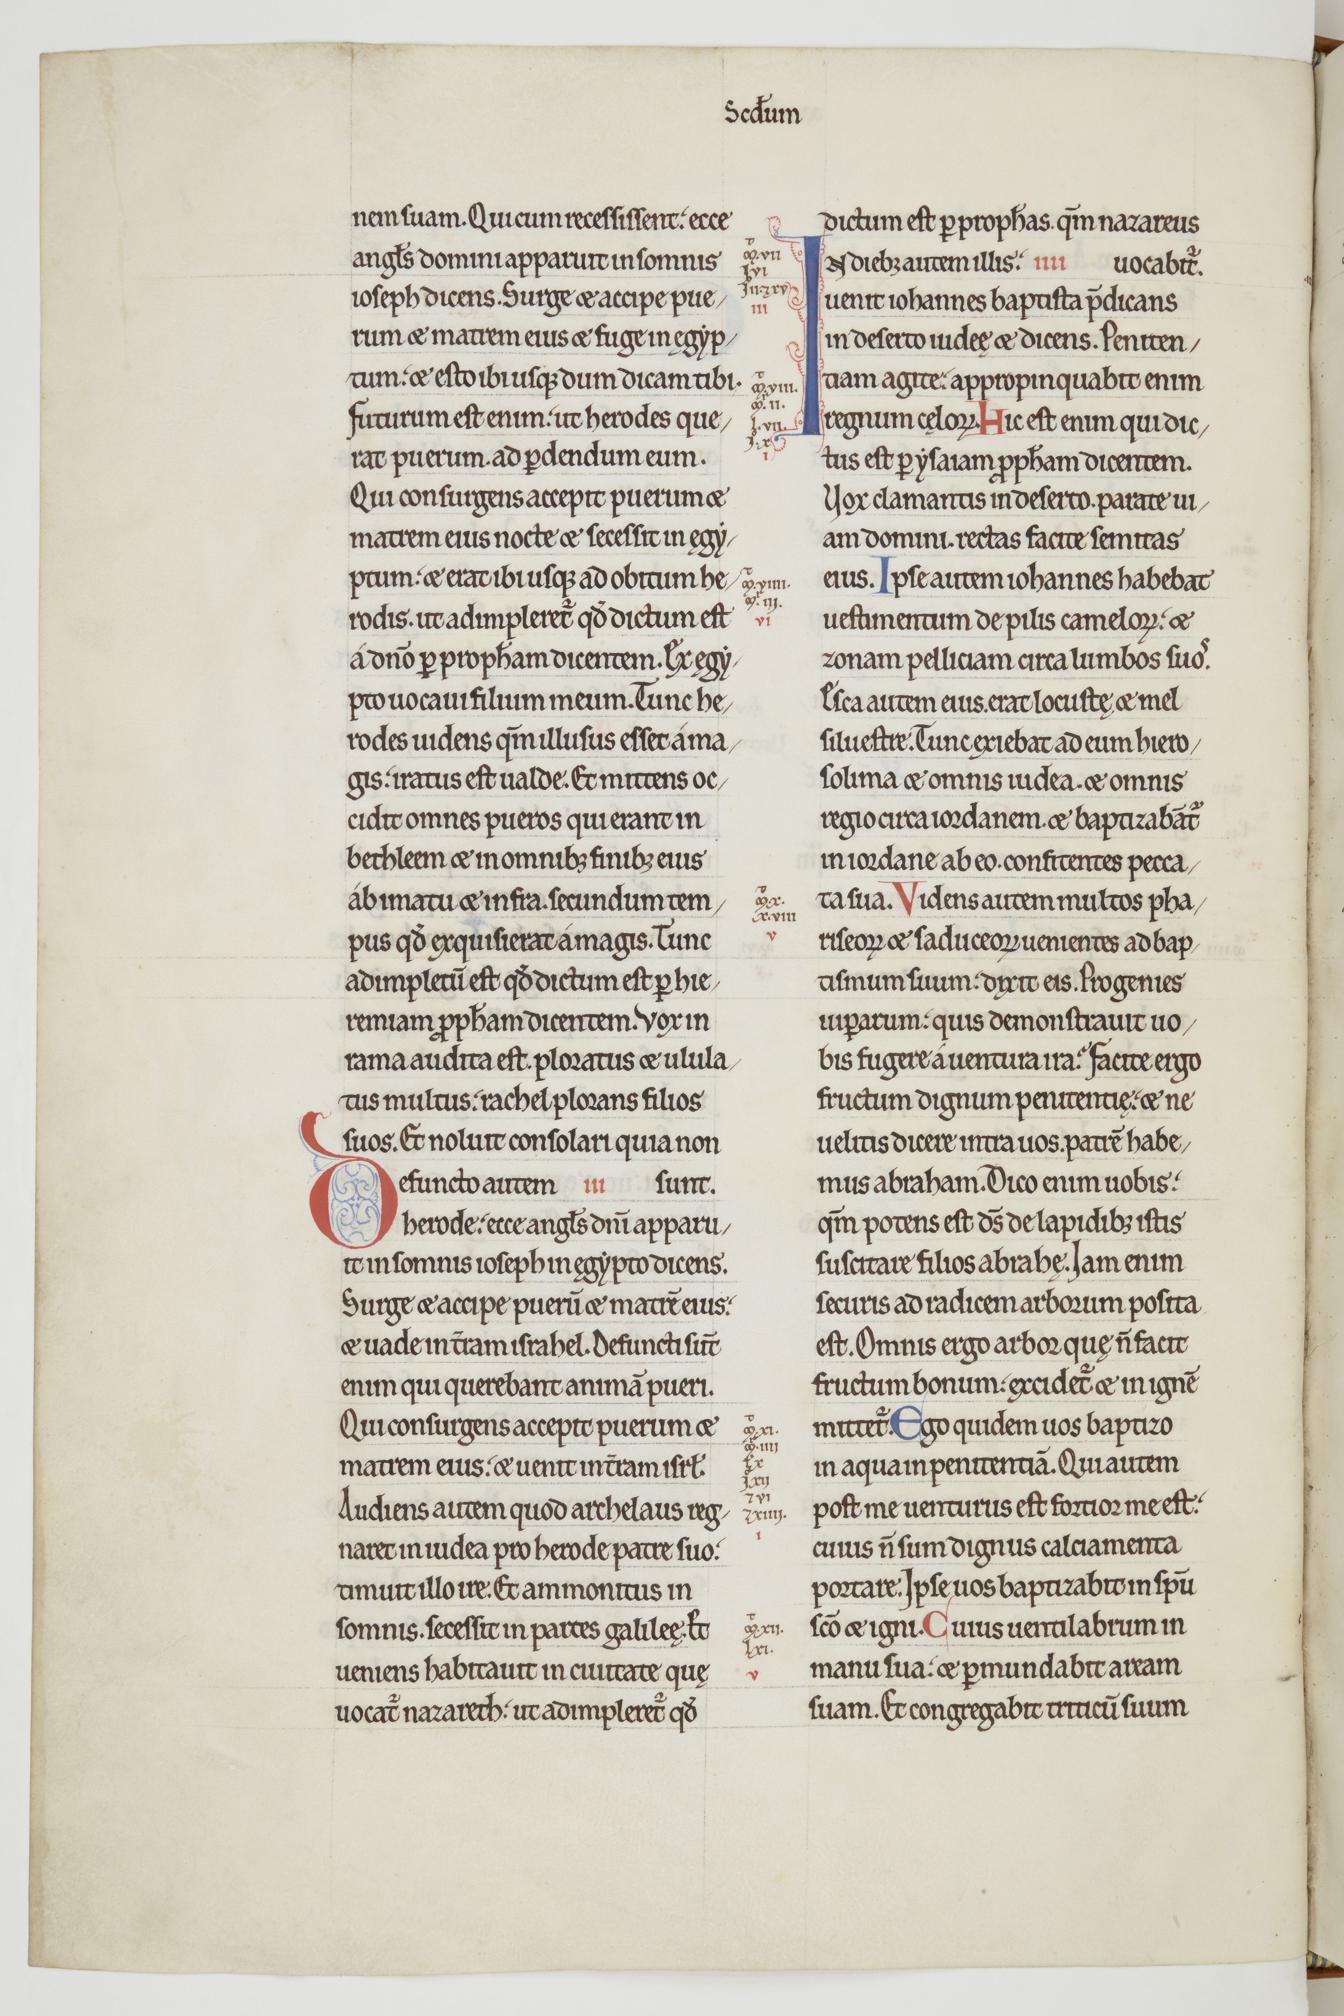 Scđum
nem suam. Qui cum recessissent: ecce
angl̄s domini apparuit in somnis
ioseph dicens. Surge & accipe pue/
rum & matrem eius & fuge in ęgẏp/
tum: & esto ibi usq; dum dicam tibi.
Futurum est enim: ut herodes que/
rat puerum ad ꝑdendum eum.
Qui consurgens accepit puerum &
matrem eius nocte & secessit in ęgẏ/
ptum: & erat ibi usq; ad obitum he/
rodis. ut adimpleret᷑ qđ dictum est
á dn̄o ꝑ proph̄am dicentem. Ex ęgẏ/
pto uocaui filium meum. Tunc he/
rodes uidens qm̄ illusus esset á ma/
gis: iratus est ualde. Et mittens oc/
cidit omnes pueros qui erant in
bethleem & in omnib; finib; eius
ábimatu & infra. secundum tem/
pus qđ exquisierat á magis. Tunc
adimpletū est qđ dictum est ꝑ hie/
remiam ꝓph̄am dicentem. Vox in
rama audita est. ploratus & ulula/
tus multus: rachel plorans filios
suos. Et noluit consolari quia non
Defuncto autem iii sunt.
herode: ecce angl̄s dn̄i apparu/
it in somnis ioseph in ęgẏpto dicens.
Surge & accipe puerū & matrē eius:
& uade in t̄ram israhel. Defuncti sūt
enim qui querebant animā pueri.
Qui consurgens accepit puerum &
matrem eius: & uenit in t̄ram isrl̄.
Audiens autem quod archelaus reg/
naret in iudea pro herode patre suo:
timuit illo ire. Et ammonitus in
somnis. secessit in partes galileę. Et
ueniens habitauit in ciuitate quę
uocat᷑ nazareth: ut adimpleret᷑ qđ
vii
lvi
iii
viii.
ii.
l. vii.
i
viiii.
iii.
vi
x.
x.viii
v
xi.
iiii
lx
i
xii.
lxi.
v
dictum est ꝑ proph̄as. qm̄ nazareus
IN dieb; autem illis: iiii uocabit᷑.
uenit iohannes baptista p̄dicans
in deserto iudeę & dicens. Peniten/
tiam agite: appropinquabit enim
regnum cęloꝝ. Hic est enim qui dic/
tus est ꝑ ẏsaiam ꝓph̄am dicentem.
Vox clamantis in deserto. parate ui/
am domini. rectas facite semitas
eius. Ipse autem iohannes habebat
uestimentum de pilis cameloꝝ: &
zonam pelliciam circa lumbos suoˢ.
Esca autem eius. erat locustę & mel
siluestre. Tunc exiebat ad eum hiero/
solima & omnis iudea. & omnis
regio circa iordanem. & baptizabāt᷑
in iordane ab eo. confitentes pecca/
ta sua. Videns autem multos pha/
riseoꝝ & saduceoꝝ uenientes ad bap/
tismum suum: dixit eis. Progenies
uiꝑarum: quis demonstrauit uo/
bis fugere á uentura ira? Facite ergo
fructum dignum penitentię: & ne
uelitis dicere intra uos. patrē habe/
mus abraham. Dico enim uobis:
qm̄ potens est ds̄ de lapidib; istis
suscitare filios abrahę. Iam enim
securis ad radicem arborum posita
est. Omnis ergo arbor quę n̄ facit
fructum bonum: excidet᷑ & in ignē
mittet᷑. Ego quidem uos baptizo
in aqua in penitentiā. Qui autem
post me uenturus est fortior me est:
cuius n̄ sum dignus calciamenta
portare. Ipse uos baptizabit in spū
scō & igni. Cuius uentilabrum in
manu sua: & ꝑmundabit aream
suam. Et congregabit triticū suum